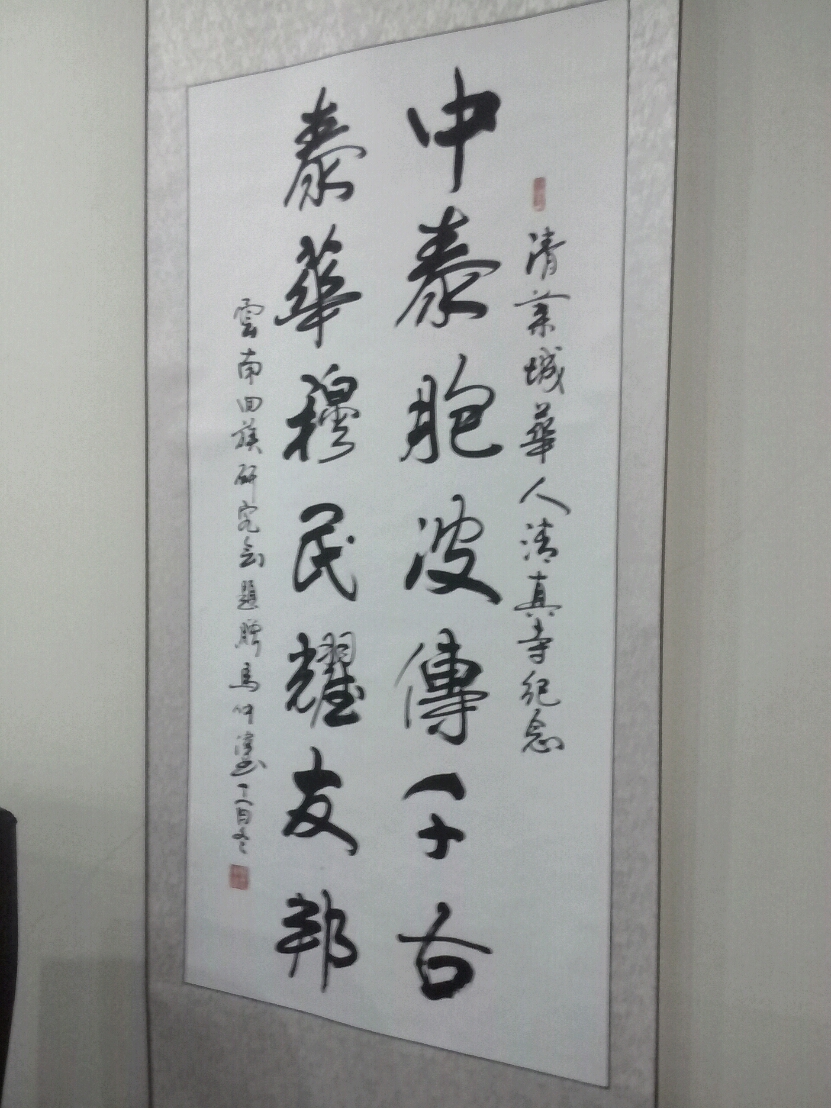 清莱城華人清真寺紀念
中泰胞波傳千古
泰華穆民耀友邦
雲南回族研究会題贈馬仲 丁酉冬